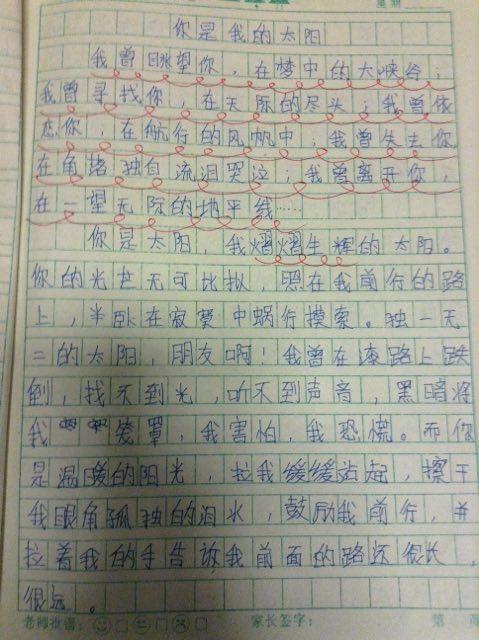 星期
你是我的太阳
我曾眺望你，在梦中的大峡谷；
我曾寻找你，在天际的尽头；我曾依
恋你，在航行的风帆中；我曾失去你，
在角堵独自流泪哭泣；我曾离开你，
在一望无际的地平线……
你是太阳，我熠熠生辉的太阳。
你的光芒无可比拟，照在我前行的路
上，半卧在寂寞中蜗行摸索。独一无
二的太阳，朋友啊！我曾在漆路上跌
倒，找不到光，听不到声音，黑暗将
我笼罩，我害怕，我恐慌。而你
是温暖的阳光，拉我缓缓站起，擦干
我眼角孤独的泪水，鼓励我前行，并
拉着我的手告诉我前面的路还很长，
很远。
老师批语： 家长签字： 第 页